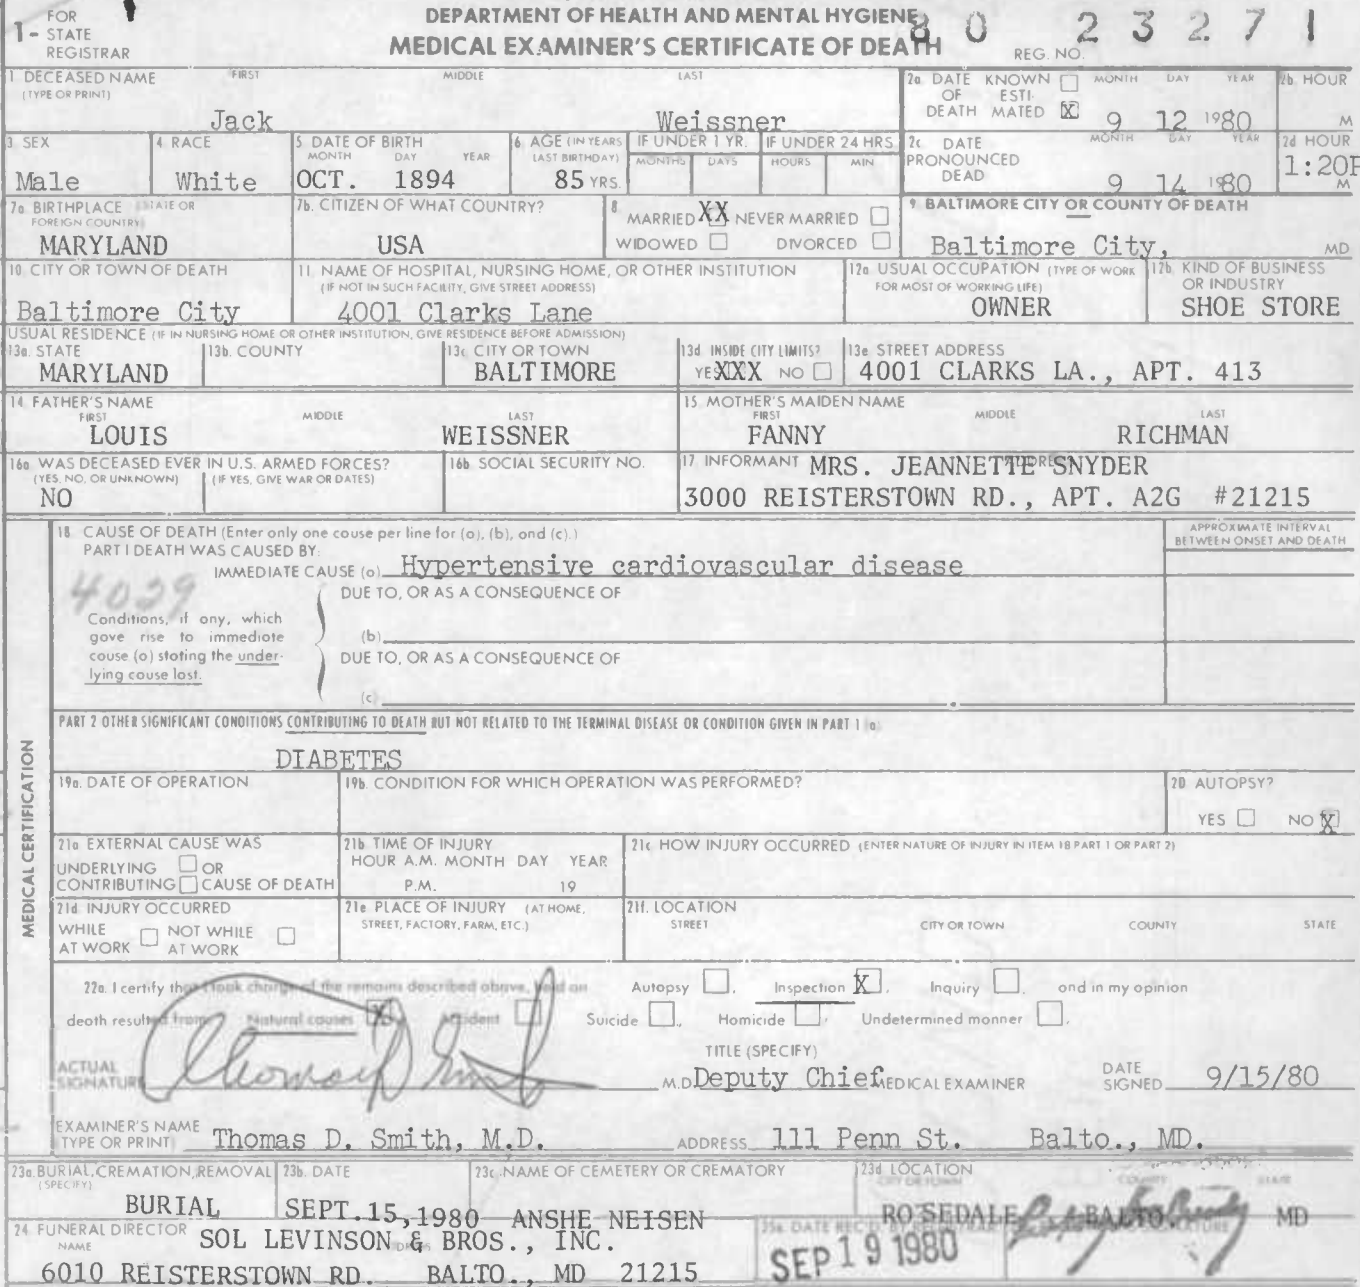 1- FOR STATE REGISTRAR
DEPARTMENT OF HEALTH AND MENTAL HYGIENE
MEDICAL EXAMINER'S CERTIFICATE OF DEATH
REG. NO. 80 23271
1 DECEASED NAME (TYPE OR PRINT) FIRST MIDDLE LAST
Jack Weissner
2a DATE OF DEATH KNOWN ☐ ESTI-MATED ☒ MONTH DAY YEAR
9 12 1980
2b. HOUR
M
3 SEX
Male
4 RACE
White
5 DATE OF BIRTH MONTH DAY YEAR
OCT. 1894
6 AGE (IN YEARS LAST BIRTHDAY)
85 YRS.
IF UNDER 1 YR. MONTHS DAYS
IF UNDER 24 HRS HOURS MIN
2c DATE PRONOUNCED DEAD MONTH DAY YEAR
9 14 1980
2d HOUR
1:20P
M
7a BIRTHPLACE (STATE OR FOREIGN COUNTRY)
MARYLAND
7b. CITIZEN OF WHAT COUNTRY?
USA
8 MARRIED XX NEVER MARRIED ☐
WIDOWED ☐ DIVORCED ☐
9 BALTIMORE CITY OR COUNTY OF DEATH
Baltimore City, MD
10 CITY OR TOWN OF DEATH
Baltimore City
11. NAME OF HOSPITAL, NURSING HOME, OR OTHER INSTITUTION
(IF NOT IN SUCH FACILITY, GIVE STREET ADDRESS)
4001 Clarks Lane
12a USUAL OCCUPATION (TYPE OF WORK FOR MOST OF WORKING LIFE)
OWNER
12b. KIND OF BUSINESS OR INDUSTRY
SHOE STORE
USUAL RESIDENCE (IF IN NURSING HOME OR OTHER INSTITUTION, GIVE RESIDENCE BEFORE ADMISSION)
13a. STATE
MARYLAND
13b. COUNTY
13c CITY OR TOWN
BALTIMORE
13d INSIDE CITY LIMITS?
YES XXX NO ☐
13e STREET ADDRESS
4001 CLARKS LA., APT. 413
14 FATHER'S NAME FIRST MIDDLE LAST
LOUIS WEISSNER
15 MOTHER'S MAIDEN NAME FIRST MIDDLE LAST
FANNY RICHMAN
16a WAS DECEASED EVER IN U.S. ARMED FORCES?
(YES, NO, OR UNKNOWN) (IF YES, GIVE WAR OR DATES)
NO
16b SOCIAL SECURITY NO.
17 INFORMANT MRS. JEANNETTE SNYDER
3000 REISTERSTOWN RD., APT. A2G #21215
MEDICAL CERTIFICATION
18 CAUSE OF DEATH (Enter only one cause per line for (a), (b), and (c).)
APPROXIMATE INTERVAL BETWEEN ONSET AND DEATH
PART I DEATH WAS CAUSED BY:
IMMEDIATE CAUSE (a) Hypertensive cardiovascular disease
4029
DUE TO, OR AS A CONSEQUENCE OF
Conditions, if any, which gave rise to immediate cause (a) stating the under-lying cause last.
(b)
DUE TO, OR AS A CONSEQUENCE OF
(c)
PART 2 OTHER SIGNIFICANT CONDITIONS CONTRIBUTING TO DEATH BUT NOT RELATED TO THE TERMINAL DISEASE OR CONDITION GIVEN IN PART 1 (a)
DIABETES
19a. DATE OF OPERATION
19b. CONDITION FOR WHICH OPERATION WAS PERFORMED?
20 AUTOPSY?
YES ☐ NO ☒
21a EXTERNAL CAUSE WAS
UNDERLYING ☐ OR
CONTRIBUTING ☐ CAUSE OF DEATH
21b TIME OF INJURY
HOUR A.M. MONTH DAY YEAR
P.M. 19
21c HOW INJURY OCCURRED (ENTER NATURE OF INJURY IN ITEM 18 PART 1 OR PART 2)
21d INJURY OCCURRED
WHILE AT WORK ☐ NOT WHILE AT WORK ☐
21e PLACE OF INJURY (AT HOME, STREET, FACTORY, FARM, ETC.)
21f. LOCATION
STREET CITY OR TOWN COUNTY STATE
22a. I certify that I took charge of the remains described above, held an Autopsy ☐, Inspection ☒, Inquiry ☐, and in my opinion
death resulted from Natural causes ☒ Accident ☐ Suicide ☐, Homicide ☐, Undetermined manner ☐.
ACTUAL SIGNATURE Thomas D Smith M.D.
TITLE (SPECIFY)
Deputy Chief MEDICAL EXAMINER
DATE SIGNED 9/15/80
EXAMINER'S NAME TYPE OR PRINT) Thomas D. Smith, M.D.
ADDRESS 111 Penn St. Balto., MD.
23a. BURIAL, CREMATION, REMOVAL (SPECIFY)
BURIAL
23b. DATE
SEPT.15,1980
23c. NAME OF CEMETERY OR CREMATORY
ANSHE NEISEN
23d LOCATION CITY OR TOWN COUNTY STATE
ROSEDALE BALTO. MD
24 FUNERAL DIRECTOR NAME
SOL LEVINSON & BROS., INC.
6010 REISTERSTOWN RD. BALTO., MD 21215
25a DATE REC'D
SEP 19 1980